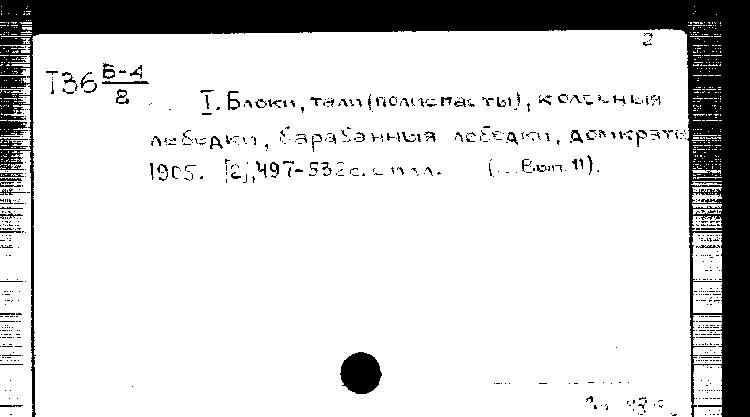 2
Т36 Б-4/8
I. Блоки, тали (полиспасты), колесныя
лебедки, барабанныя лебедки, домкраты
1905. [2], 497-532 с. с илл. (... Вып. 11).